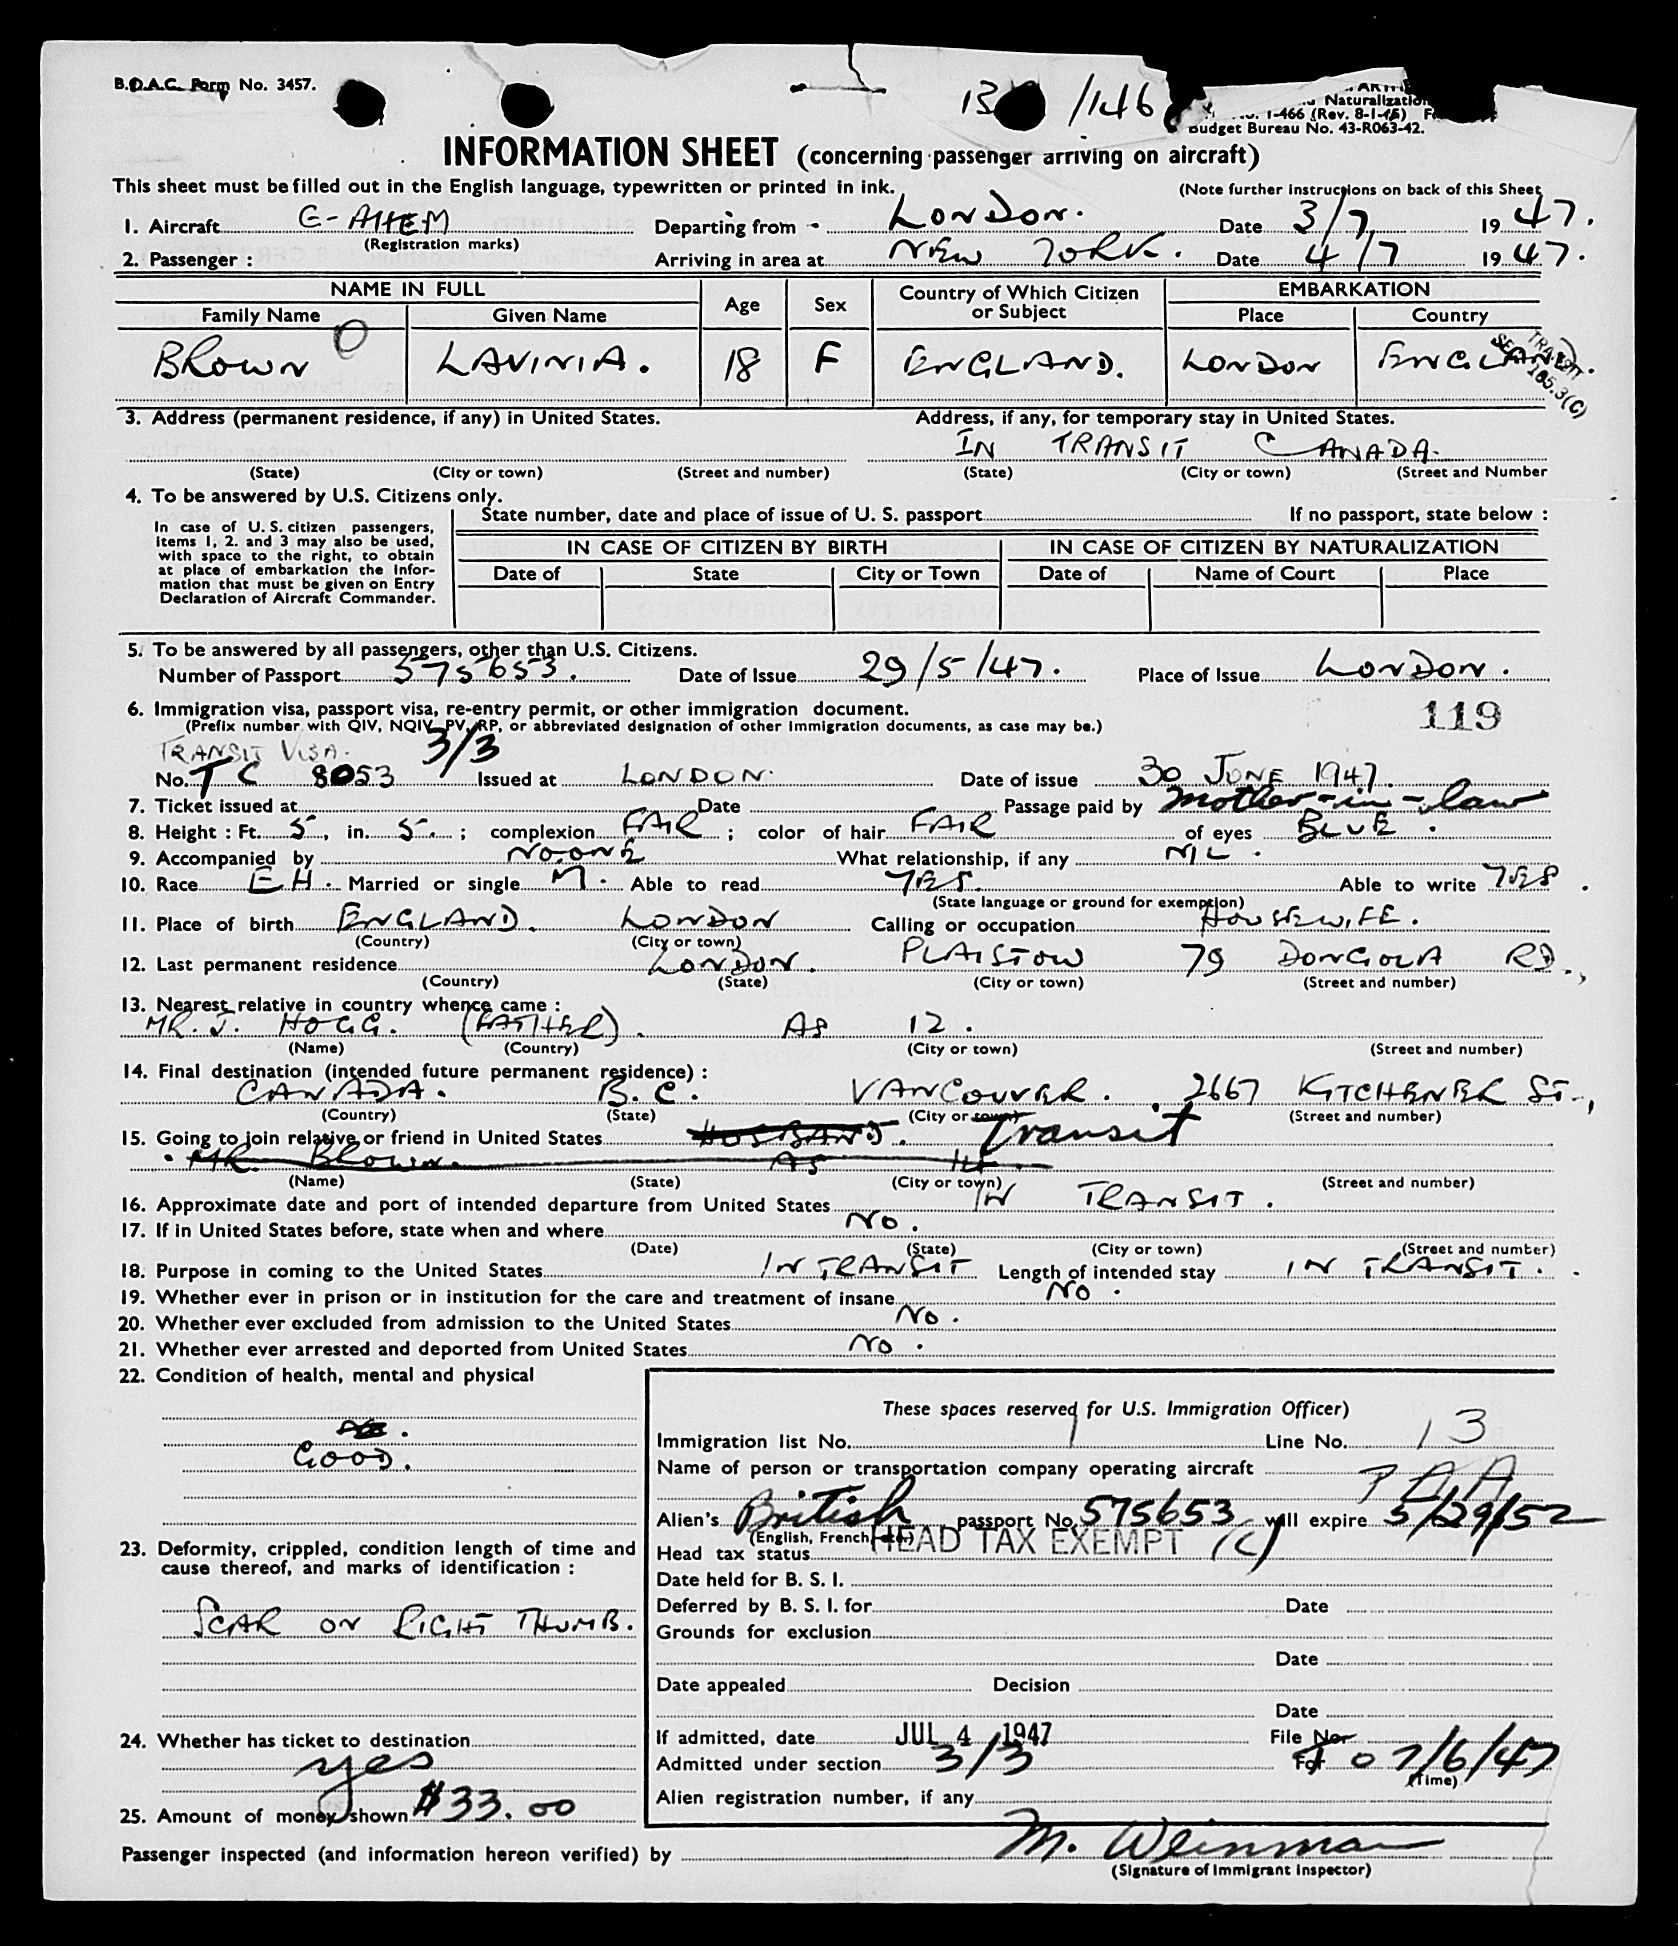 B.O.A.C. Form No. 3457.
/146
Naturalization
1-466 (Rev. 8-1-45)
Budget Bureau No. 43-R063-42.
INFORMATION SHEET (concerning passenger arriving on aircraft)
This sheet must be filled out in the English language, typewritten or printed in ink. (Note further instructions on back of this Sheet
1. Aircraft G-AHEM Departing from - LONDON. Date 3/7 1947.
(Registration marks)
2. Passenger : Arriving in area at NEW YORK. Date 4/7 1947.
NAME IN FULL Age Sex Country of Which Citizen or Subject EMBARKATION
Family Name Given Name Place Country
BROWN O LAVINIA. 18 F ENGLAND. LONDON ENGLAND.
SEC. TRANSIT 165.3(C)
3. Address (permanent residence, if any) in United States. Address, if any, for temporary stay in United States.
IN TRANSIT CANADA.
(State) (City or town) (Street and number) (State) (City or town) (Street and Number
4. To be answered by U.S. Citizens only.
State number, date and place of issue of U. S. passport If no passport, state below :
In case of U. S. citizen passengers,
items 1, 2. and 3 may also be used,
with space to the right, to obtain
at place of embarkation the infor-
mation that must be given on Entry
Declaration of Aircraft Commander.
IN CASE OF CITIZEN BY BIRTH IN CASE OF CITIZEN BY NATURALIZATION
Date of State City or Town Date of Name of Court Place
5. To be answered by all passengers, other than U.S. Citizens.
Number of Passport 575653. Date of Issue 29/5/47. Place of Issue LONDON.
6. Immigration visa, passport visa, re-entry permit, or other immigration document.
(Prefix number with QIV, NQIV, PV, RP, or abbreviated designation of other immigration documents, as case may be.)
119
TRANSIT VISA. 3/3
No. TC 8053 Issued at LONDON. Date of issue 30 JUNE 1947.
7. Ticket issued at Date Passage paid by Mother-in-law
8. Height : Ft. 5, in. 5. ; complexion FAIR ; color of hair FAIR of eyes BLUE.
9. Accompanied by NO-ONE What relationship, if any NIL.
10. Race EH. Married or single M. Able to read YES. Able to write YES.
(State language or ground for exemption)
11. Place of birth ENGLAND. LONDON Calling or occupation HOUSEWIFE.
(Country) (City or town)
12. Last permanent residence LONDON. PLAISTOW 79 DONGOLA RD.,
(Country) (State) (City or town) (Street and number)
13. Nearest relative in country whence came :
MR. J. HOGG. (FATHER). AS 12.
(Name) (Country) (City or town) (Street and number)
14. Final destination (intended future permanent residence) :
CANADA. B.C. VANCOUVER. 2667 KITCHENER ST.,
(Country) (State) (City or town) (Street and number)
15. Going to join relative or friend in United States HUSBAND. Transit
MR. BROWN. AS 14.
(Name) (State) (City or town) (Street and number)
16. Approximate date and port of intended departure from United States IN TRANSIT.
17. If in United States before, state when and where NO.
(Date) (State) (City or town) (Street and number)
18. Purpose in coming to the United States IN TRANSIT Length of intended stay IN TRANSIT.
19. Whether ever in prison or in institution for the care and treatment of insane NO.
20. Whether ever excluded from admission to the United States NO.
21. Whether ever arrested and deported from United States NO.
22. Condition of health, mental and physical
GOOD.
23. Deformity, crippled, condition length of time and
cause thereof, and marks of identification :
SCAR ON RIGHT THUMB.
24. Whether has ticket to destination
yes
25. Amount of money shown $33.00
These spaces reserved for U.S. Immigration Officer)
Immigration list No. 1 Line No. 13
Name of person or transportation company operating aircraft PAA
Alien's British passport No. 575653 will expire 5/29/52
(English, French, etc.)
Head tax status HEAD TAX EXEMPT (C)
Date held for B. S. I.
Deferred by B. S. I. for Date
Grounds for exclusion
Date
Date appealed Decision
Date
If admitted, date JUL 4 1947 File No.
Admitted under section 3/3 For to 7/6/47
(Time)
Alien registration number, if any
Passenger inspected (and information hereon verified) by M. Weinman
(Signature of Immigrant Inspector)